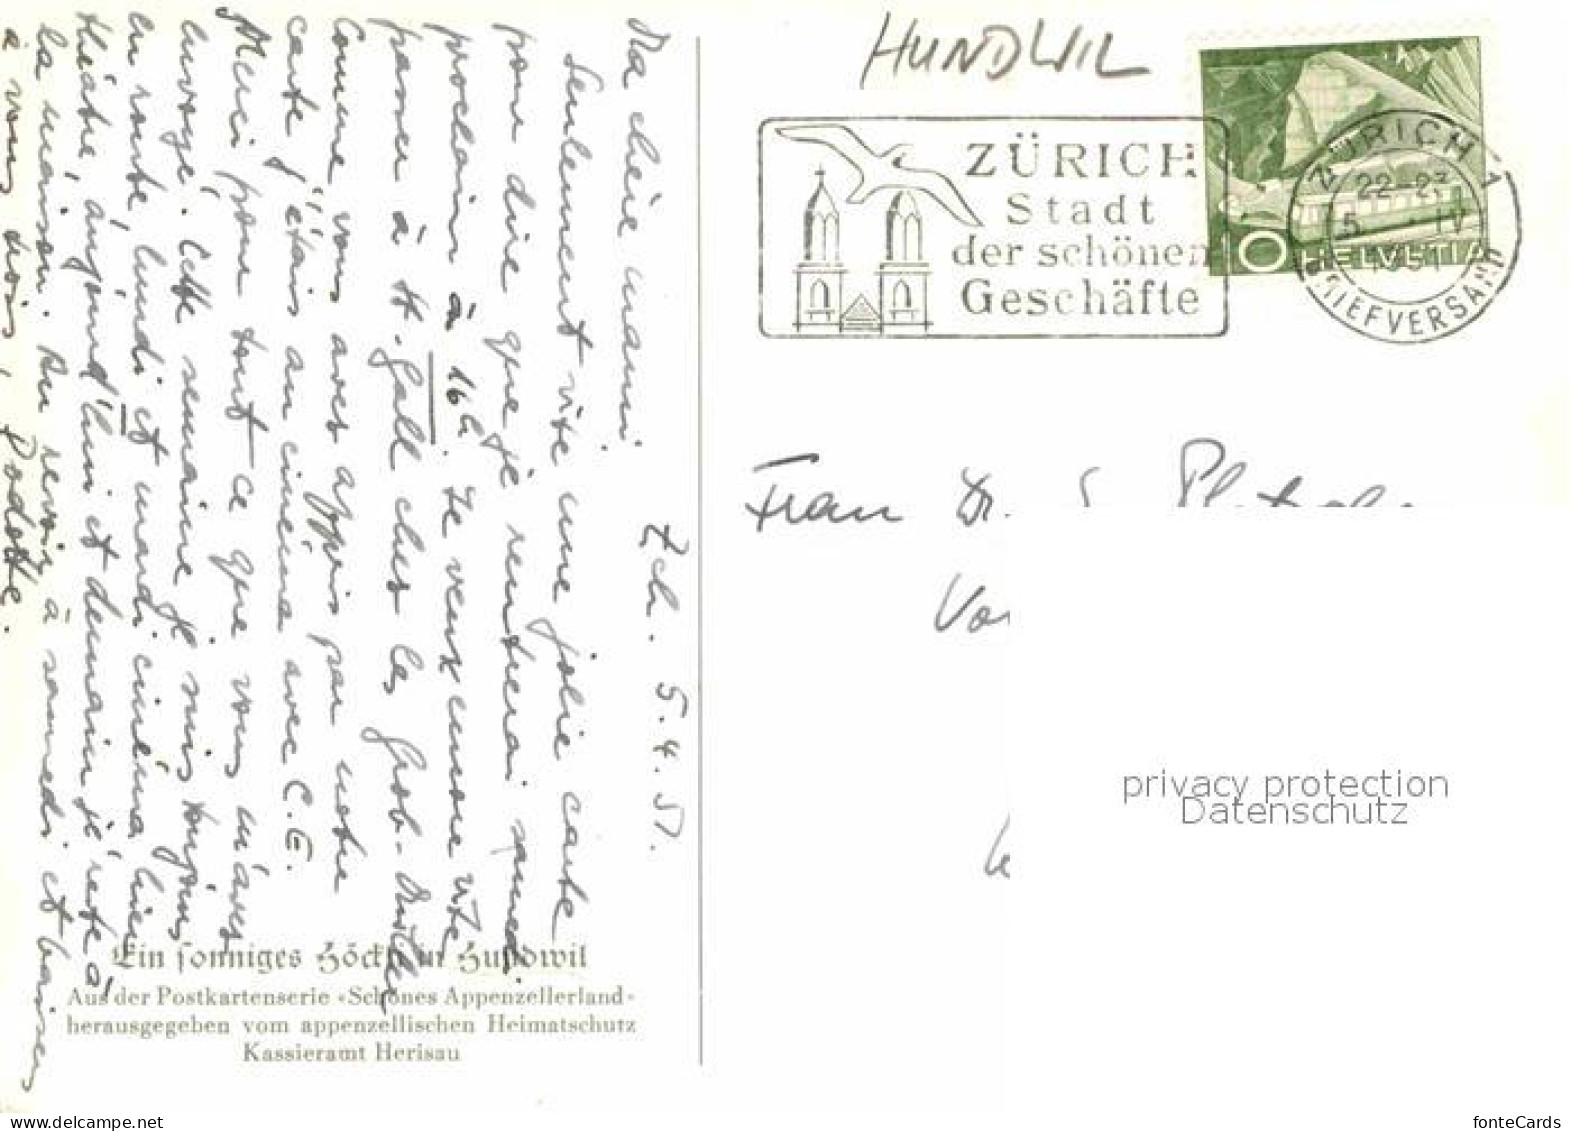 HUNDWIL
ZÜRICH
Stadt
der schönen
Geschäfte
ZÜRICH 1
22-23
5. IV
1951
BRIEFVERSAND
10 HELVETIA
Zch. 5.4.51.
Ma chère mami
Seulement vite une jolie carte
pour dire que je rentrerai samedi
prochain à 16h. Je veux encore vite
passer à St. Gall chez les Grob-
Comme vous avez appris par notre
carte j'étais au cinéma avec C.E.
Merci pour tout ce que vous m'avez
envoyé. Cette semaine je suis toujours
en route, lundi et mardi cinéma, hier
théâtre, aujourd'hui et demain je reste à
la maison. Au revoir à samedi et baisers
à vous trois, Dodotte.
Ein sonniges Höckli in Hundwil
Aus der Postkartenserie «Schönes Appenzellerland»
herausgegeben vom appenzellischen Heimatschutz
Kassieramt Herisau
Frau Dr.
privacy protection
Datenschutz
www.delcampe.net
fonteCards